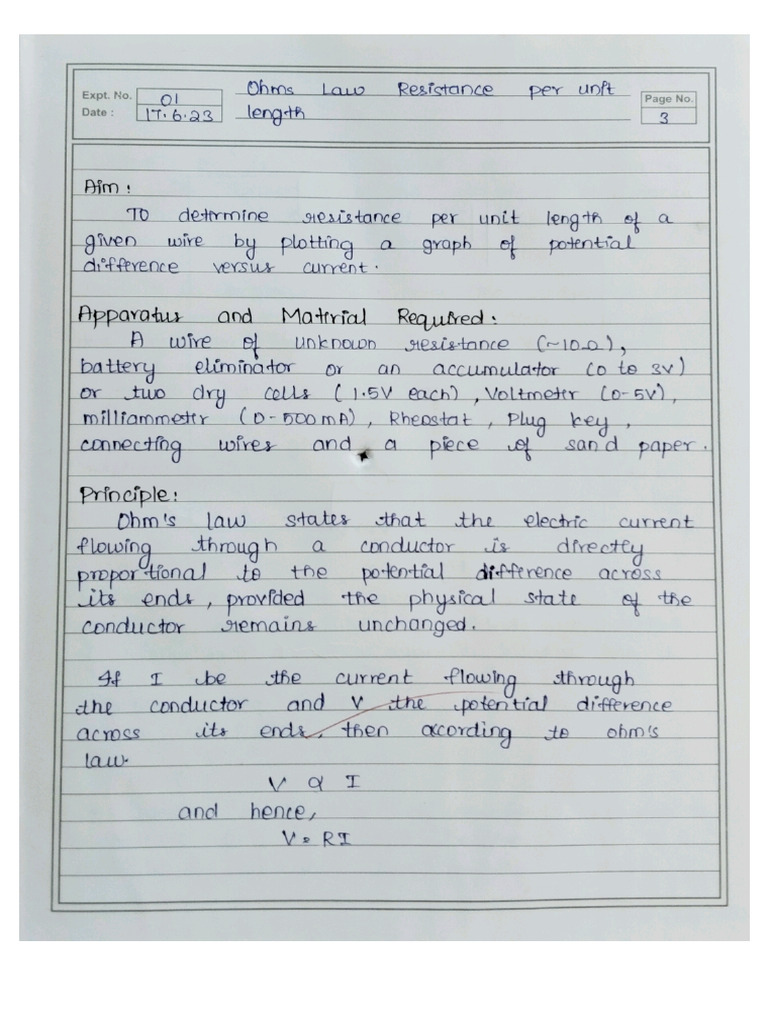 Expt. No. 01
Date : 17.6.23
Ohms Law Resistance per unit
length
Page No.
3
Aim :
To detrmine resistance per unit length of a
given wire by plotting a graph of potential
difference versus current.
Apparatus and Matrial Required :
A wire of unknown resistance (~10Ω),
battery eliminator or an accumulator (0 to 3V)
or two dry cells (1.5V each), Voltmetr (0-5V),
milliammetr (0-500mA), Rheostat, Plug key,
connecting wires and a piece of sand paper.
Principle :
Ohm's law states that the electric current
flowing through a conductor is directly
proportional to the potential difference across
its ends, provided the physical state of the
conductor remains unchanged.
If I be the current flowing through
the conductor and V the potential difference
across its ends, then according to ohm's
law.
V α I
and hence,
V = RI